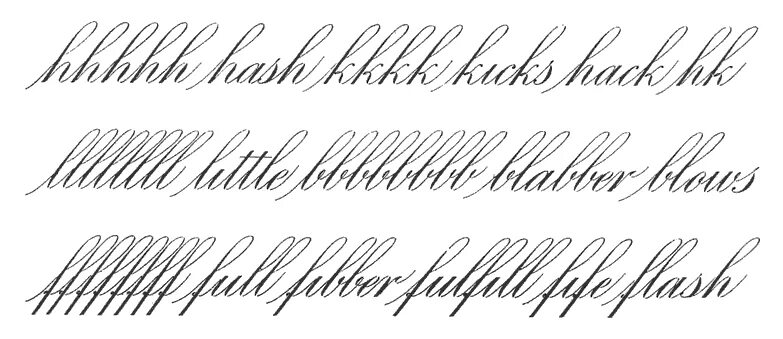 hhhhh hash kkkk kicks hack hk
lllllll little bbbbbbb blabber blows
fffffff full fibber fulfill fife flash